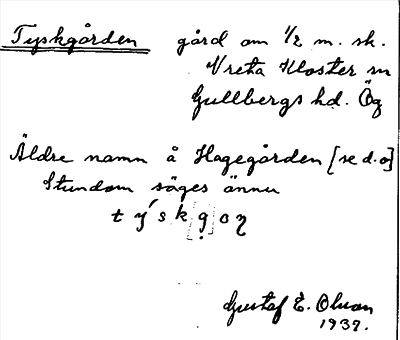 Tyskgården gård om 1/2 m. sk.
Vreta Kloster sn
Gullbergs hd. Ög
Äldre namn å Hagegården [se d.o]
Stundom säges ännu
týskgọn
Gustaf E. Olsson
1937.